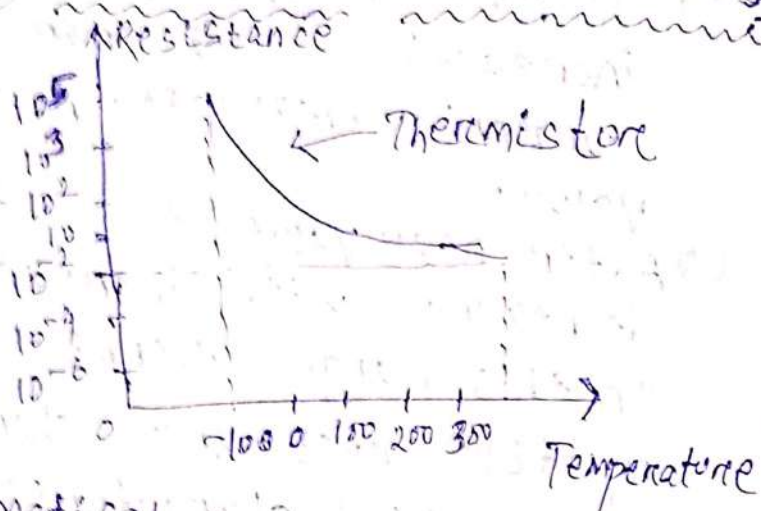 Resistance
10^5
10^3
10^2
10
10^-2
10^-4
10^-6
Thermistore
0
-100 0 100 200 300
Temperature